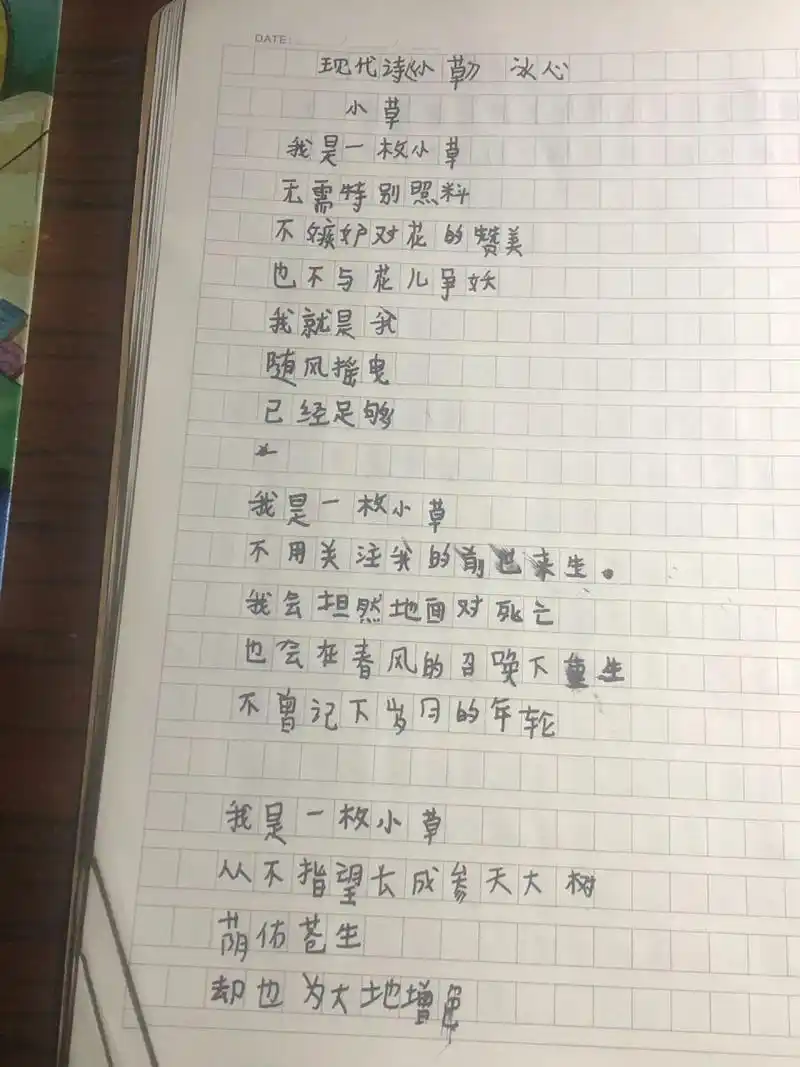 DATE:
现代诗小草 冰心
小草
我是一枚小草
无需特别照料
不嫉妒对花的赞美
也不与花儿争妖
我就是我
随风摇曳
已经足够
我是一枚小草
不用关注我的前世来生。
我会坦然地面对死亡
也会在春风的召唤下重生
不曾记下岁月的年轮
我是一枚小草
从不指望长成参天大树
荫佑苍生
却也为大地增色